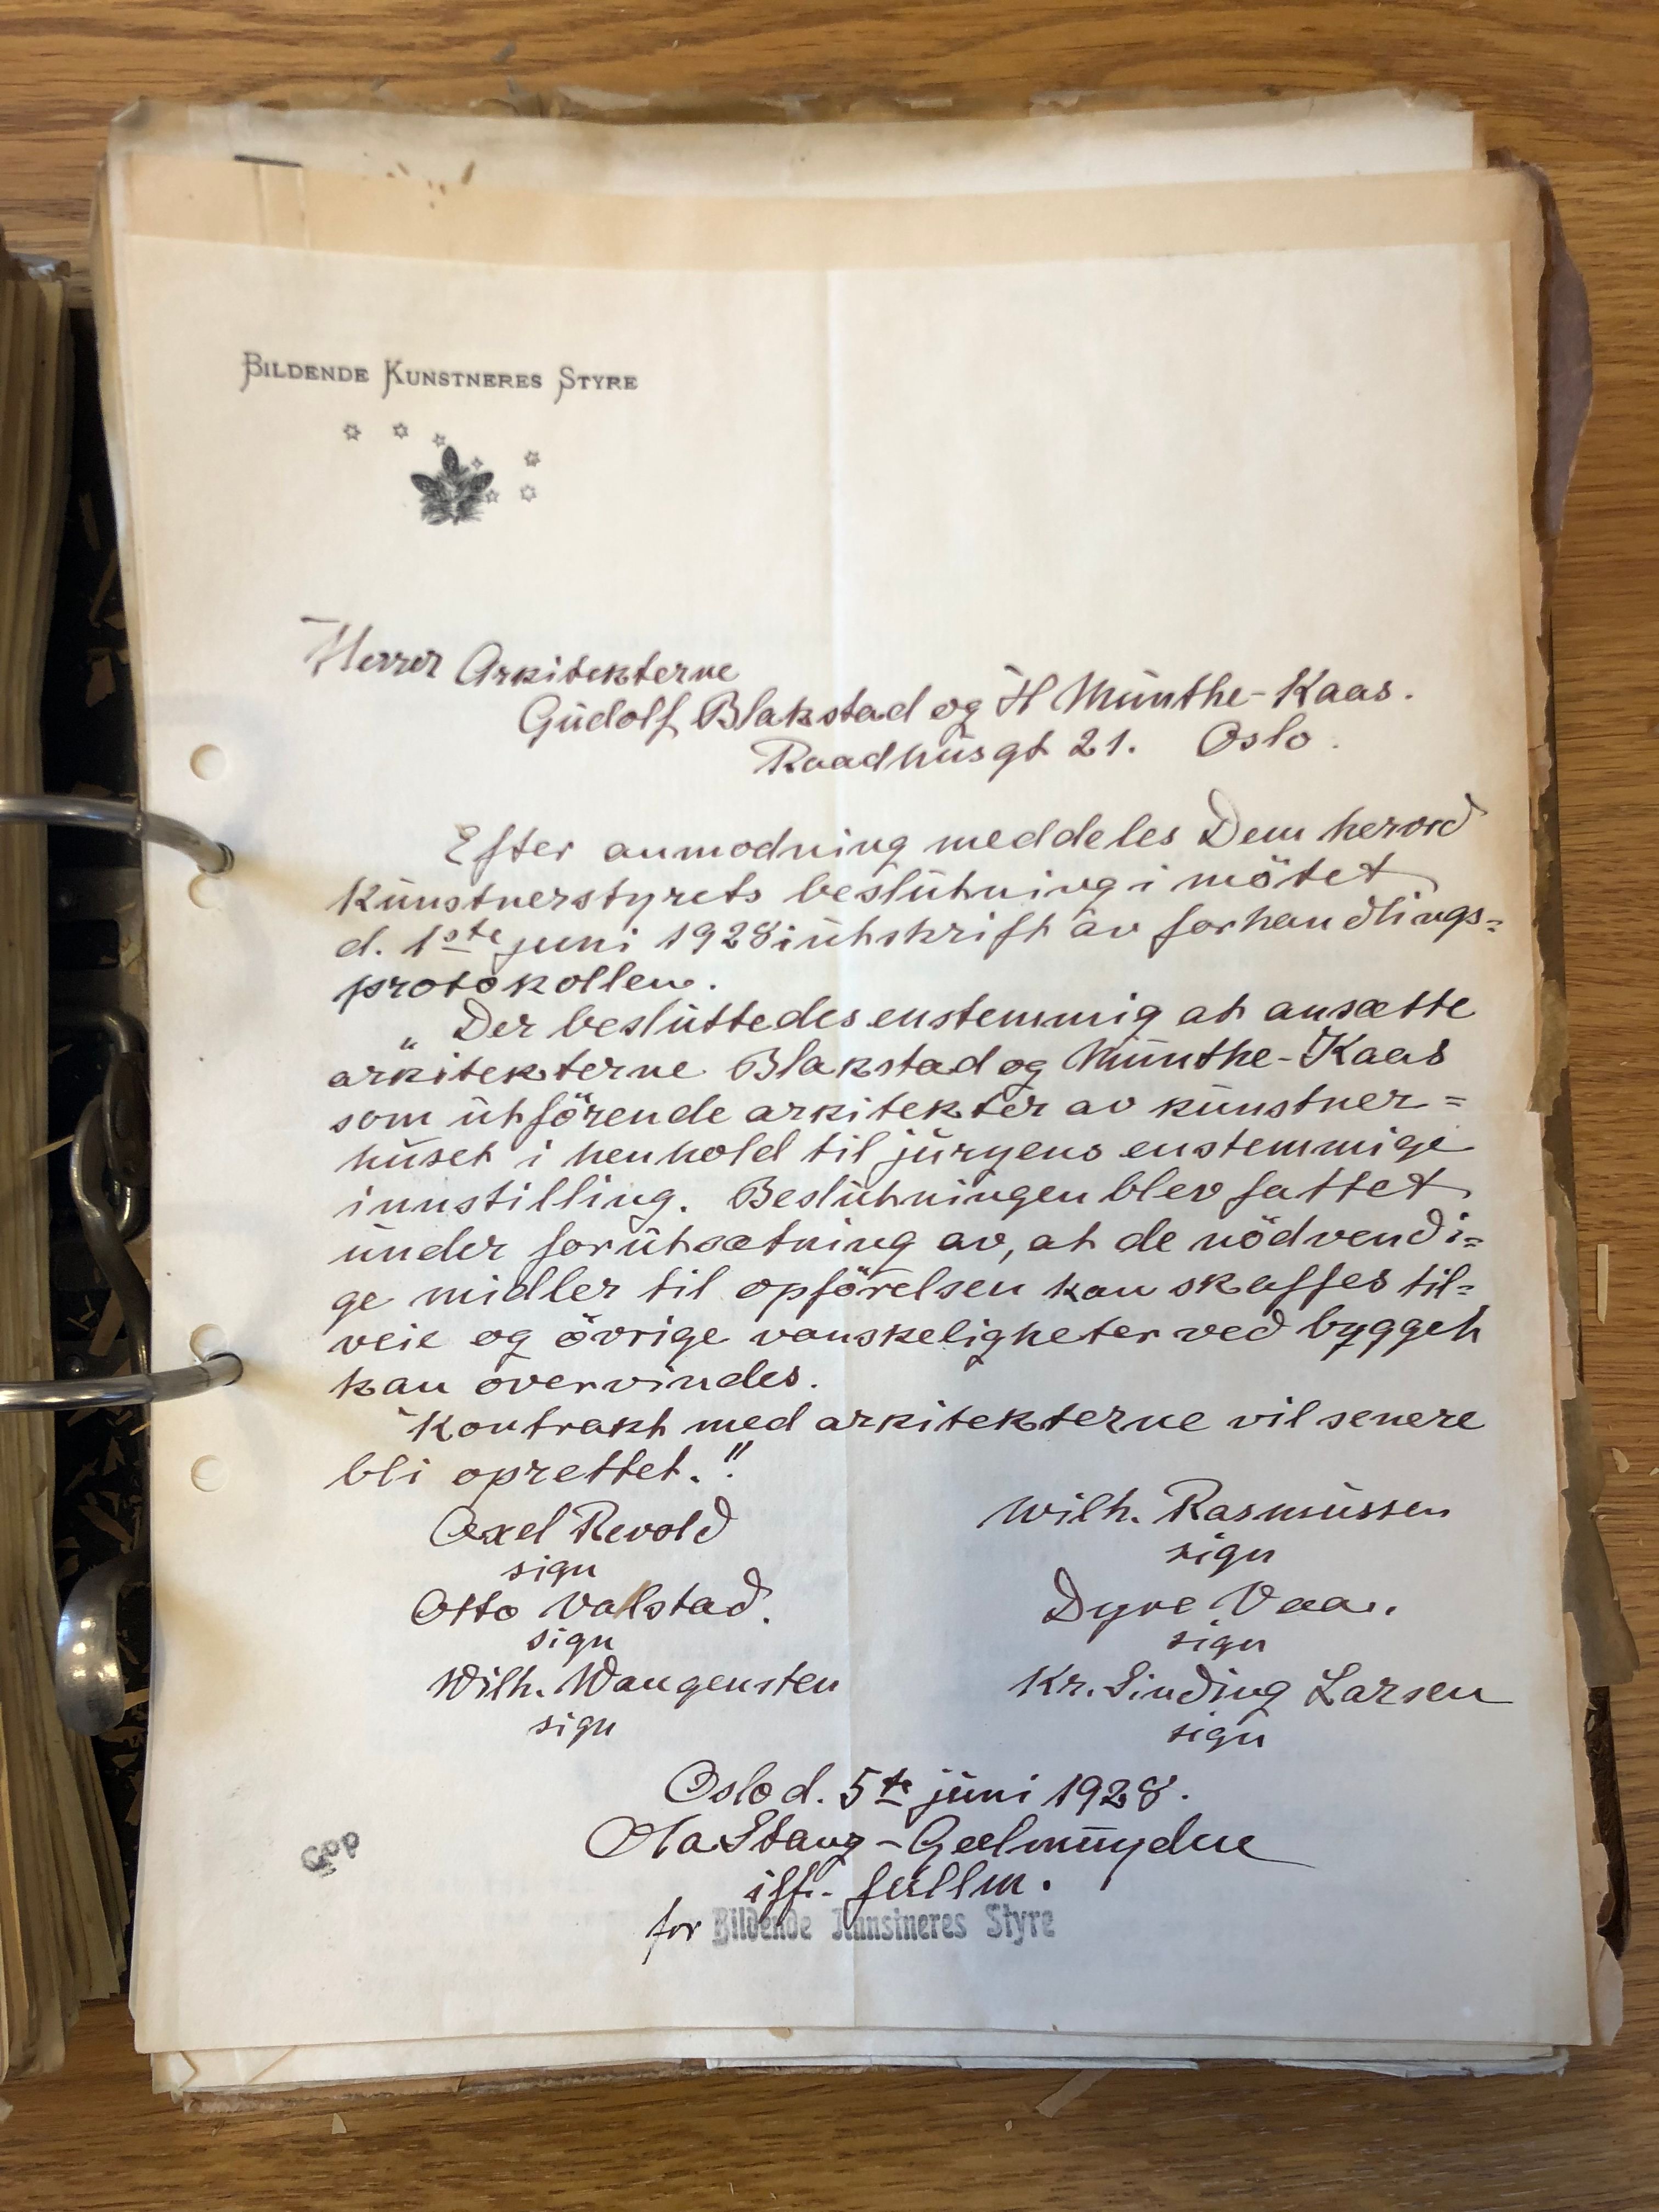 BILDENDE KUNSTNERES STYRE
Herrer Arkitekterne
Gudolf Blakstad og H Munthe-Kaas.
Raadhusgt 21. Oslo.
Efter anmodning meddeles Dem herved
Kunstnerstyrets beslutning i mötet
d. 1ste juni 1928 i utskrift av forhandlings=
protokollen.
"Der besluttedes enstemmig at ansætte
arkitekterne Blakstad og Munthe-Kaas
som utförende arkitekter av kunstner=
huset i henhold til juryens enstemmige
innstilling. Beslutningen blev fattet
under forutsætning av, at de nödvendi=
ge midler til opförelsen kan skaffes til=
veie og övrige vanskeligheter ved bygget
kan overvindes.
Kontrakt med arkitekterne vil senere
bli oprettet."
Axel Revold Wilh. Rasmussen
sign sign
Otto Valstad. Dyre Vaa.
sign sign
Wilh. Wangensten Kr. Sinding Larsen
sign sign
Oslo d. 5te juni 1928.
Ola Stang-Geelmuyden
for Bildende Kunstneres Styre